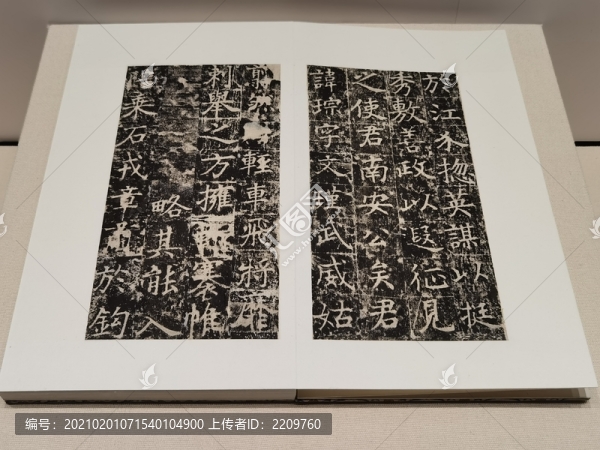 於江水惚英謀以挺
秀敷善政以遐征見
之使君南安公矣君
諱琮字文瑾武威姑
輕車飛將歷
刺舉之方擁帷
略其能入
乘石戎章於鈞
编号：20210201071540104900 上传者ID：2209760